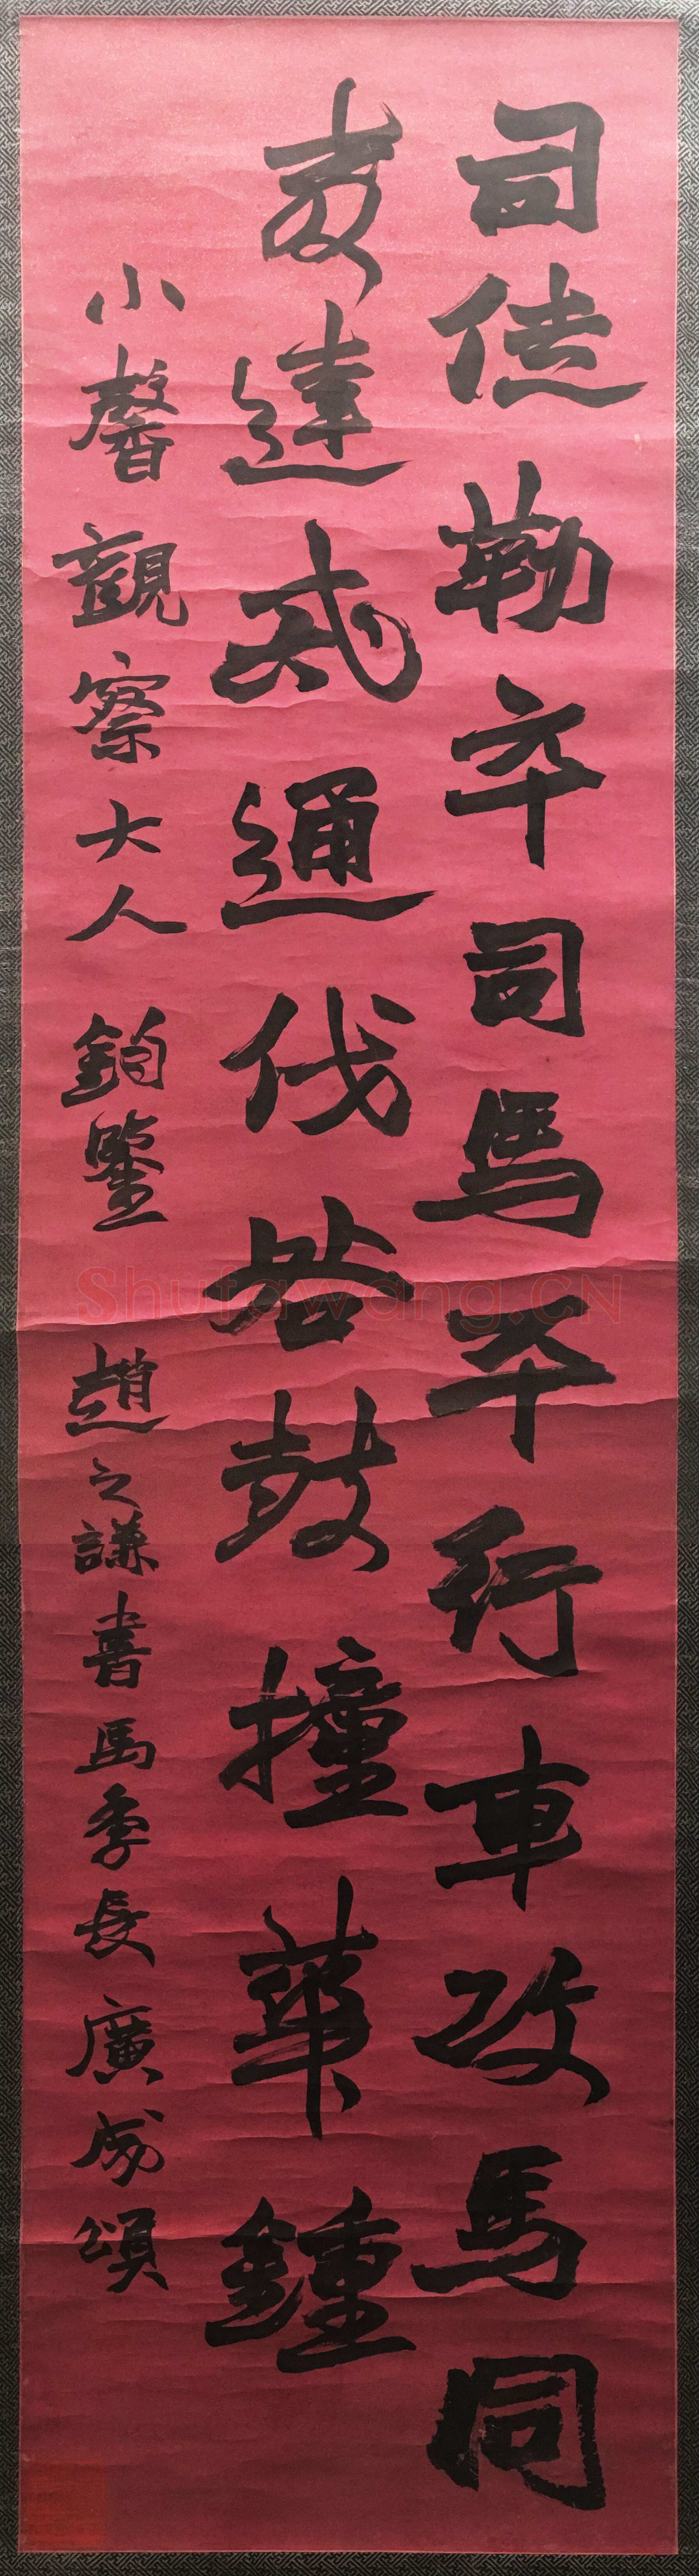 司徒勒卒司馬平行車攻馬同
教達戒通伐咎鼓撞華鍾
小馨觀察大人鈞鑒 趙之謙書馬季長廣成頌
Shufawang.CN